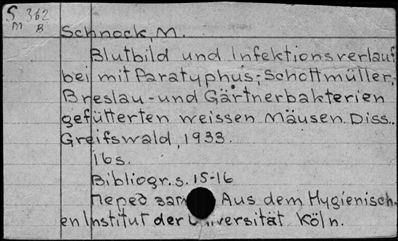 S 362
M B
Schnock, M.
Blutbild und Infektionsverlauf
bei mit Paratyphus-, Schottmüller-,
Breslau- und Gärtnerbakterien
gefütterten weissen Mäusen. Diss..
Greifswald, 1933.
16s.
Bibliogr. s. 15-16
Перед Aus dem Hygienisch-
en Institut der Universität Köln.